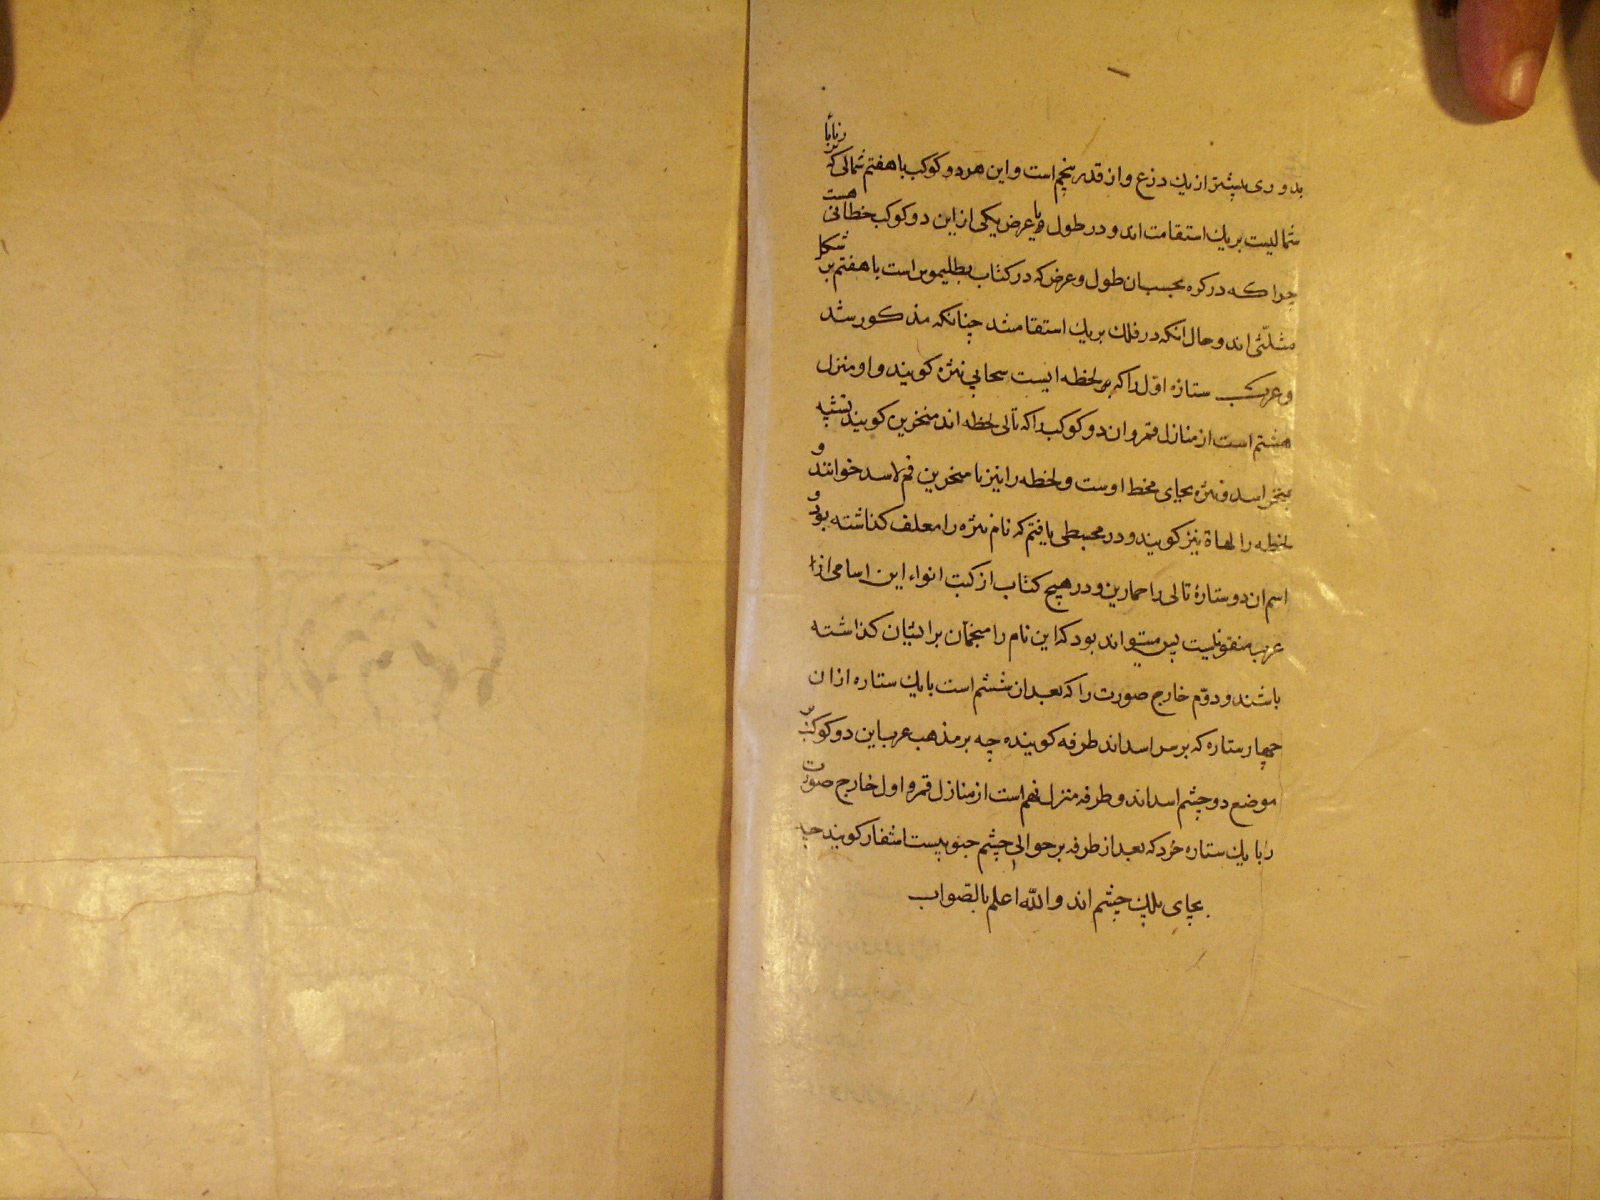 بدوری بیشتر از یک دزع و از قدر پنجم است و این هر دو کوکب با هفتم شمالی که زبانا
شمالیست بر یک استقامت اند و در طول یا عرض یکی از این دو کوکب خطائی هست
چرا که در کره بحسب ان طول و عرض که در کتاب بطلیموس است با هفتم بر شکل
مثلثی اند و حال انکه در فلک بر یک استقامتند چنانکه مذکور شد
و عرب ستاره اول را که بر لخظه ایست سحابی نثره کویند و او منزل
هشتم است از منازل قمر و ان دو کوکب را که تالی لخظه اند منخرین کویند تشبیه
بمنخر اسد و نثره بجای مخط اوست و لخظه را نیز با منخرین فم الاسد خوانند و
لخظه را لهاة نیز کویند و در مجسطی یافتم که نام نثره را معلف کذاشته بود و
اسم ان دو ستارۀ تالی را حمارین و در هیچ کتاب از کتب انواء این اسامی از
عرب منقول نیست پس میتواند بود که این نام را منجمان برایشان کذاشته
باشند و دوّم خارج صورت را که بعد ان ششم است با یک ستاره از ان
چهار ستاره که بر سر اسد اند طرفه کویند چه بر مذهب عرب این دو کوکب بر
موضع دو چشم اسد اند و طرفه منزل نهم است از منازل قمر و اول خارج صورت
را با یک ستاره خرد که بعد از طرفه بر حوالی چشم جنوبیست اشفار کویند چه
بجای پلک چشم اند و اللّه اعلم بالصّواب